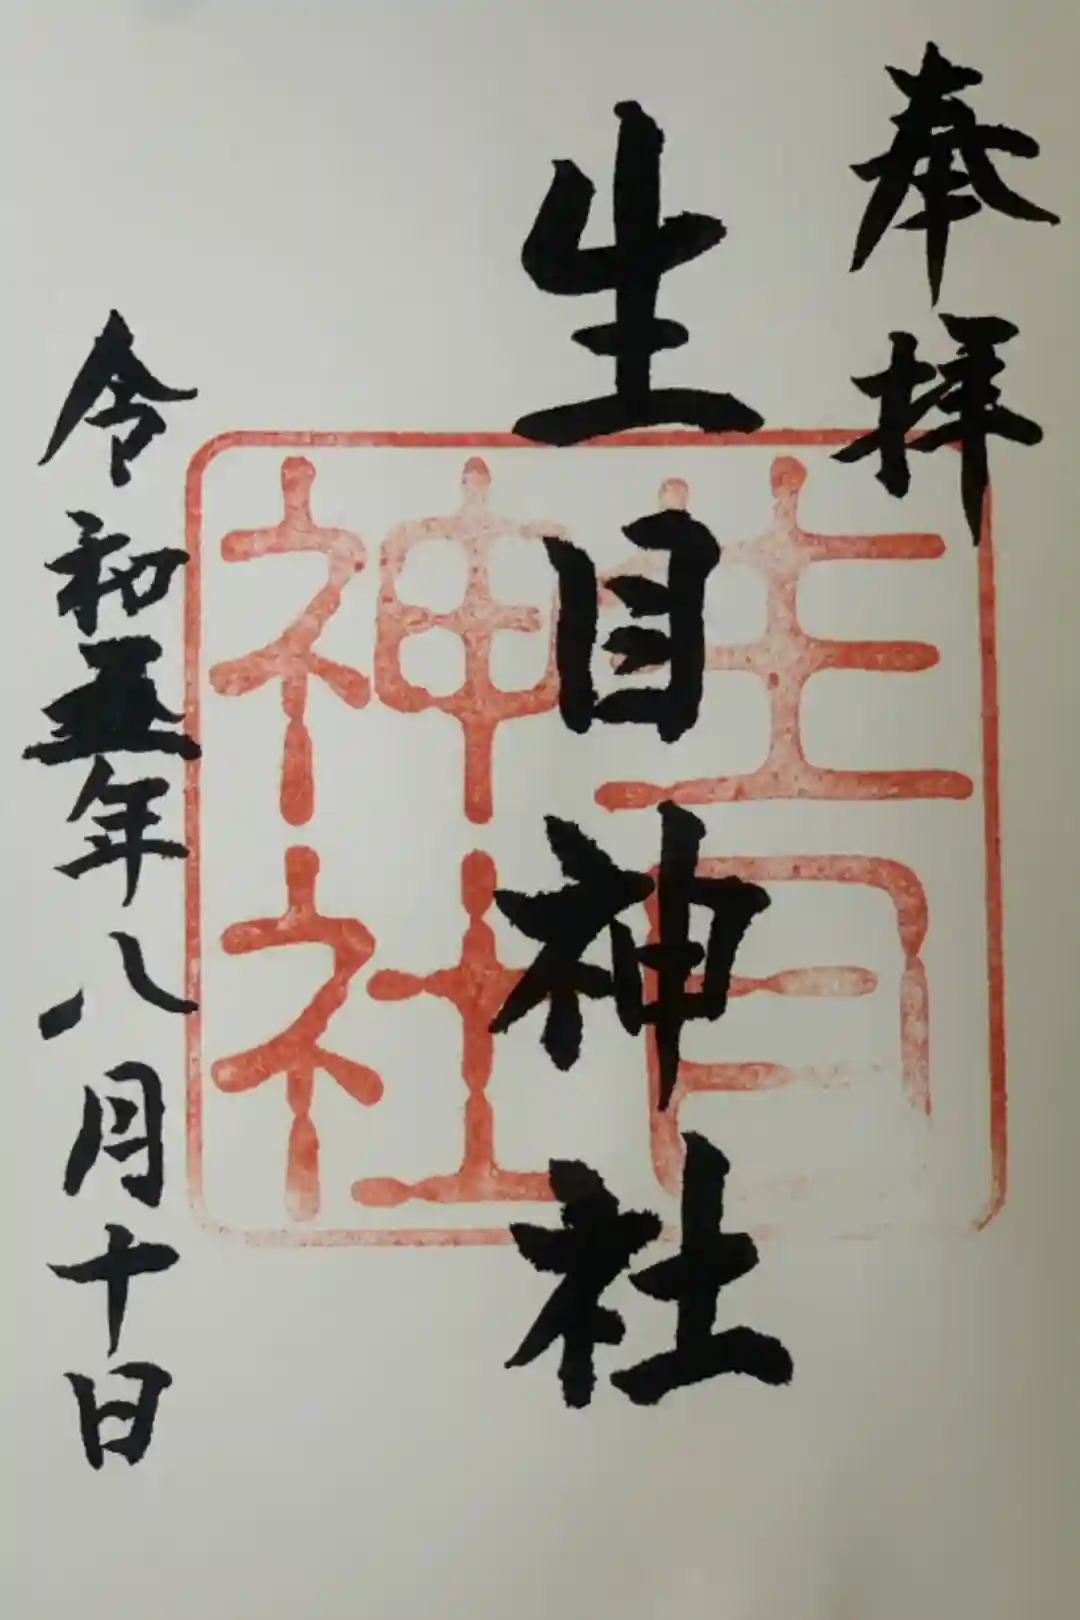 奉拝
生目神社
生目
神社
令和五年八月十日